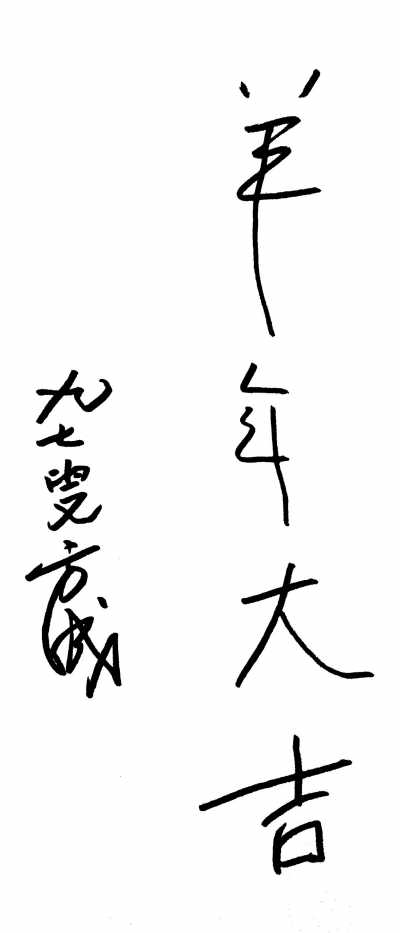 羊年大吉
九七叟方成